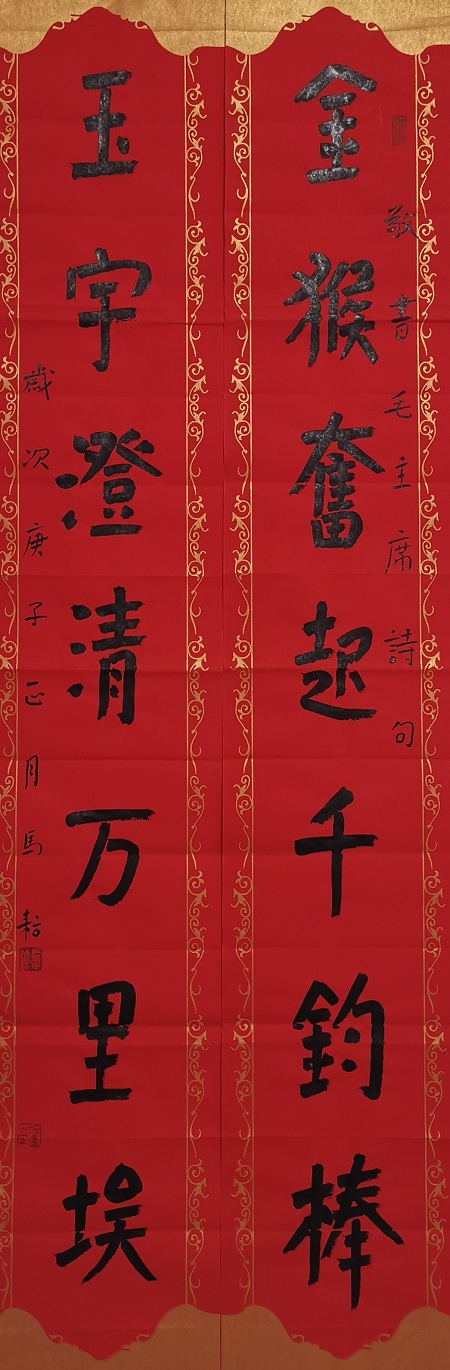 敬書毛主席詩句
金猴奮起千鈞棒
玉宇澄清万里埃
歲次庚子正月馬